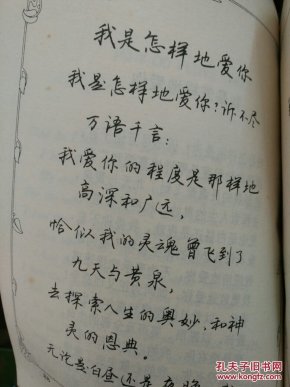 我是怎样地爱你
我是怎样地爱你？诉不尽
万语千言：
我爱你的程度是那样地
高深和广远，
恰似我的灵魂曾飞到了
九天与黄泉，
去探索人生的奥妙，和神
灵的恩典。
无论是白昼还是夜晚
孔夫子旧书网